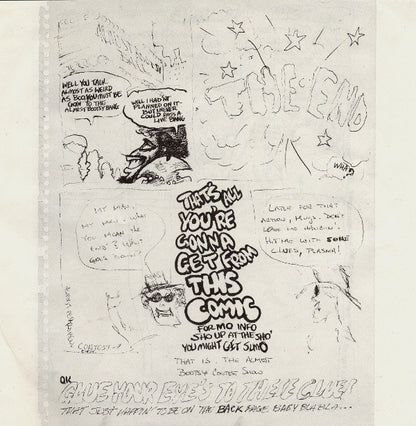 WELL YOU TALK
ALMOST AS WEIRD
AS BOO, YOU MUST BE
GOIN TO THE
ALMOST BOOTSY BANG
WELL I HADN'T
PLANNED ON IT
BUT I NEVER
COULD PASS A
LIVE BANG
THE END
WHAT?
MY MAN,
MY MAN, WHAT
YOU MEAN THE
END? WHAT
GOES DOWN?
THAT'S ALL
YOU'RE
GONNA
GET FROM
THIS
COMIC
FOR MO INFO
SHO UP AT THE SHO'
YOU MIGHT GET SUMO
THAT IS THE ALMOST
BOOTSY CONTEST SHOW
LATER FOR THAT
ACTION, MUGS. DON'T
LEAVE ME HANGIN.
HIT ME WITH SOME
CLUES, PLEASE!
CONTEST
OK
GLUE YOUR EYE'S TO THESE CLUES
THAT JUST HAPPIN TO BE ON THE BACK PAGE BABY BUBBA...